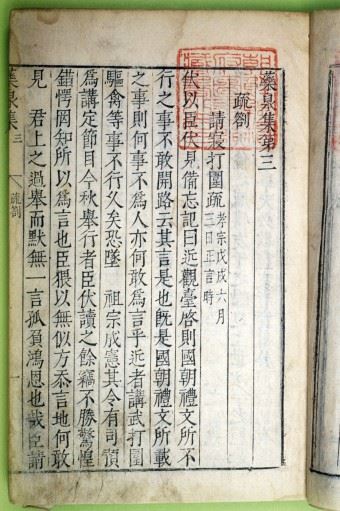 藥泉集第三
疏劄
請寢打圍疏 孝宗戊戌六月
三日正言時
伏以臣伏見備忘記曰近觀臺啓則國朝禮文所不
行之事不敢開路云其言是也旣是國朝禮文所載
之事則何事不爲人亦何敢爲言乎近者講武打圍
驅禽等事不行久矣恐墜 祖宗成憲其令有司預
爲講定節目今秋擧行者臣伏讀之餘竊不勝驚惶
錯愕罔知所以爲言也臣猥以無似方忝言地何敢
見 君上之過擧而默無一言孤負鴻恩也哉臣請
藥泉集 三 疏劄 一